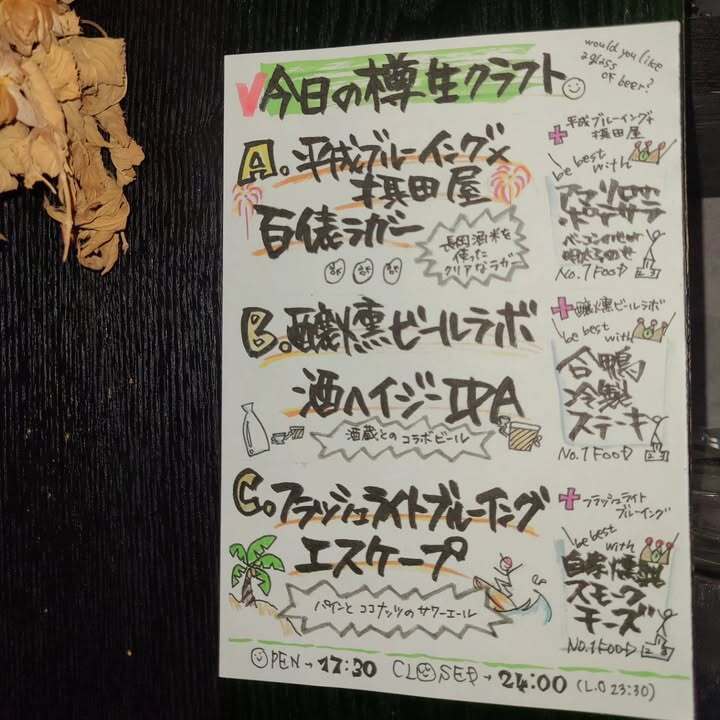 今日の樽生クラフト
would you like
a glass
of beer?
A. 平成ブルーイング×
槓田屋
百俵ラガー
長岡酒米を
使った
クリアなラガー
+平成ブルーイング+
槓田屋
be best
with
ポテサラ
No.1 FOOD
B. 醸燻ビールラボ
酒ヘイジーIPA
酒蔵とのコラボビール
+醸燻ビールラボ
be best
with
合鴨
冷製
ステーキ
No.1 FOOD
C. フラッシュライトブルーイング
エスケープ
パインとココナッツのサワーエール
+フラッシュライト
ブルーイング
be best
with
自家燻製
スモーク
チーズ
No.1 FOOD
OPEN→17:30 CLOSED→24:00 (L.O 23:30)